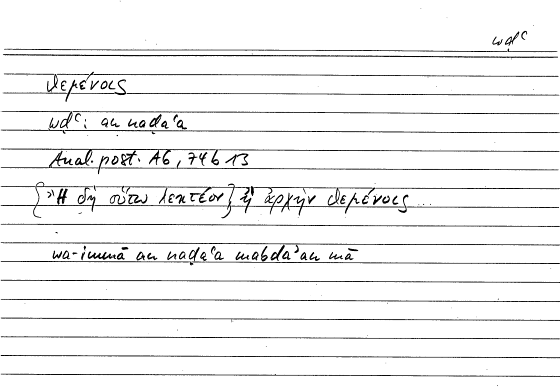 wḍʿ
θεμένοις
wḍʿ: an naḍaʿa
Anal. post. A6, 74b13
{Ἢ δὴ οὕτω λεκτέον} ἢ ἀρχὴν θεμένοις ...
wa-immā an naḍaʿa mabdaʾan mā